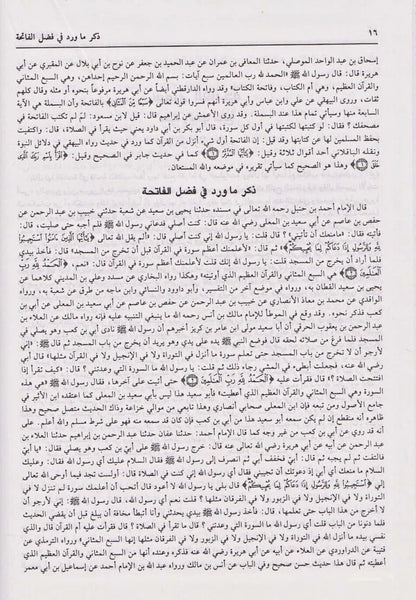 ١٦
ذكر ما ورد في فضل الفاتحة
إسحاق بن عبد الواحد الموصلي، حدثنا المعافى بن عمران عن عبد الحميد بن جعفر عن نوح بن أبي بلال عن المقبري عن أبي
هريرة قال: قال رسول الله ﷺ «الحمد لله رب العالمين سبع آيات: بسم الله الرحمن الرحيم إحداهن، وهي السبع المثاني
والقرآن العظيم، وهي أم الكتاب، وفاتحة الكتاب» وقد رواه الدارقطني أيضاً عن أبي هريرة مرفوعاً بنحوه أو مثله وقال كلهم
ثقات، وروى البيهقي عن علي وابن عباس وأبي هريرة أنهم فسروا قوله تعالى ﴿سَبْعًا مِّنَ الْمَثَانِي﴾ بالفاتحة وأن البسملة هي الآية
السابعة منها وسيأتي تمام هذا عند البسملة. وقد روى الأعمش عن إبراهيم قال: قيل لابن مسعود: لمَ لم تكتب الفاتحة في
مصحفك؟ فقال: لو كتبتها لكتبتها في أول كل سورة، قال أبو بكر بن أبي داود يعني حيث يقرأ في الصلاة، قال: واكتفيت
بحفظ المسلمين لها عن كتابتها وقد قيل: إن الفاتحة أول شيء أنزل من القرآن كما ورد في حديث رواه البيهقي في دلائل النبوة
ونقله الباقلاني أحد أقوال ثلاثة وقيل: ﴿يَا أَيُّهَا الْمُدَّثِّرُ﴾ كما في حديث جابر في الصحيح وقيل: ﴿اقْرَأْ بِاسْمِ رَبِّكَ الَّذِي
خَلَقَ﴾ وهذا هو الصحيح كما سيأتي تقريره في موضعه والله المستعان.
ذكر ما ورد في فضل الفاتحة
قال الإمام أحمد بن حنبل رحمه الله تعالى في مسنده حدثنا يحيى بن سعيد عن شعبة حدثني خبيب بن عبد الرحمن عن
حفص بن عاصم عن أبي سعيد بن المعلى رضي الله عنه قال: كنت أصلي فدعاني رسول الله ﷺ فلم أجبه حتى صليت، قال:
فأتيته فقال: «ما منعك أن تأتيني»؟ قال قلت: يا رسول الله إني كنت أصلي قال: «ألم يقل الله تعالى ﴿يَا أَيُّهَا الَّذِينَ آمَنُوا اسْتَجِيبُوا
لِلَّهِ وَلِلرَّسُولِ إِذَا دَعَاكُمْ لِمَا يُحْيِيكُمْ﴾ ثم قال: «لأعلمنك أعظم سورة في القرآن قبل أن تخرج من المسجد» قال: فأخذ بيدي
فلما أراد أن يخرج من المسجد قلت: يا رسول الله إنك قلت لأعلمنك أعظم سورة في القرآن قال: «نعم، ﴿الْحَمْدُ لِلَّهِ رَبِّ
الْعَالَمِينَ﴾ هي السبع المثاني والقرآن العظيم الذي أوتيته» وهكذا رواه البخاري عن مسدد وعلي بن المديني كلاهما عن
يحيى بن سعيد القطان به، ورواه في موضع آخر من التفسير، وأبو داود والنسائي وابن ماجه من طرق عن شعبة به، ورواه
الواقدي عن محمد بن معاذ الأنصاري عن خبيب بن عبد الرحمن عن حفص بن عاصم عن أبي سعيد بن المعلى عن أبي بن
كعب فذكر نحوه. وقد وقع في الموطأ للإمام مالك بن أنس رحمه الله ما ينبغي التنبيه عليه فإنه رواه مالك عن العلاء بن
عبد الرحمن بن يعقوب الحرقي أن أبا سعيد مولى ابن عامر بن كريز أخبرهم أن رسول الله ﷺ نادى أبي بن كعب وهو يصلي في
المسجد فلما فرغ من صلاته لحقه قال فوضع النبي ﷺ يده على يدي وهو يريد أن يخرج من باب المسجد ثم قال ﷺ: «إني
لأرجو أن لا تخرج من باب المسجد حتى تعلم سورة ما أنزل في التوراة ولا في الإنجيل ولا في القرآن مثلها» قال أبي
رضي الله عنه، فجعلت أبطىء في المشي رجاء ذلك ثم قلت: يا رسول الله ما السورة التي وعدتني؟ قال: «كيف تقرأ إذا
افتتحت الصلاة؟» قال فقرأت عليه ﴿الْحَمْدُ لِلَّهِ رَبِّ الْعَالَمِينَ﴾ حتى أتيت على آخرها، فقال رسول الله ﷺ «هي هذه
السورة وهي السبع المثاني والقرآن العظيم الذي أعطيت» فأبو سعيد هذا ليس بأبي سعيد بن المعلى كما اعتقده ابن الأثير في
جامع الأصول ومن تبعه فإن ابن المعلى صحابي أنصاري وهذا تابعي من موالي خزاعة وذاك الحديث متصل صحيح وهذا
ظاهره أنه منقطع إن لم يكن سمعه أبو سعيد هذا من أبي بن كعب فإن كان قد سمعه منه فهو على شرط مسلم والله أعلم. على
أنه قد روي عن أبي بن كعب من غير وجه كما قال الإمام أحمد: حدثنا عفان حدثنا عبد الرحمن بن إبراهيم حدثنا العلاء بن
عبد الرحمن عن أبيه عن أبي هريرة رضي الله تعالى عنه قال: خرج رسول الله ﷺ على أبي بن كعب وهو يصلي فقال: «يا أبي
فالتفت ثم لم يجبه ثم قال: أبي! فخفف أبي ثم انصرف إلى رسول الله ﷺ فقال السلام عليك أي رسول الله فقال: وعليك
السلام ما منعك أي أبي إذ دعوتك أن تجيبني فقال أي رسول الله إني كنت في الصلاة قال: أولست تجد فيما أوحى الله تعالى
إلي ﴿اسْتَجِيبُوا لِلَّهِ وَلِلرَّسُولِ إِذَا دَعَاكُمْ لِمَا يُحْيِيكُمْ﴾ قال بلى يا رسول الله لا أعود قال أتحب أن أعلمك سورة لم تنزل لا في
التوراة ولا في الإنجيل ولا في الزبور ولا في الفرقان مثلها؟ قلت نعم أي رسول الله، قال رسول الله ﷺ: إني لأرجو أن
لا أخرج من هذا الباب حتى تعلمها، قال: فأخذ رسول الله ﷺ بيدي يحدثني وأنا أتبطأ مخافة أن يبلغ قبل أن يقضي الحديث
فلما دنونا من الباب قلت أي رسول الله ما السورة التي وعدتني قال؟ ما تقرأ في الصلاة؟ قال فقرأت عليه أم القرآن قال والذي
نفسي بيده ما أنزل الله في التوراة ولا في الإنجيل ولا في الزبور ولا في الفرقان مثلها إنها السبع المثاني» ورواه الترمذي عن
قتيبة عن الدراوردي عن العلاء عن أبيه عن أبي هريرة رضي الله عنه فذكره وعنده أنها من السبع المثاني والقرآن العظيم الذي
أعطيته ثم قال هذا حديث حسن صحيح وفي الباب عن أنس بن مالك ورواه عبد الله ابن الإمام أحمد عن إسماعيل بن أبي معمر